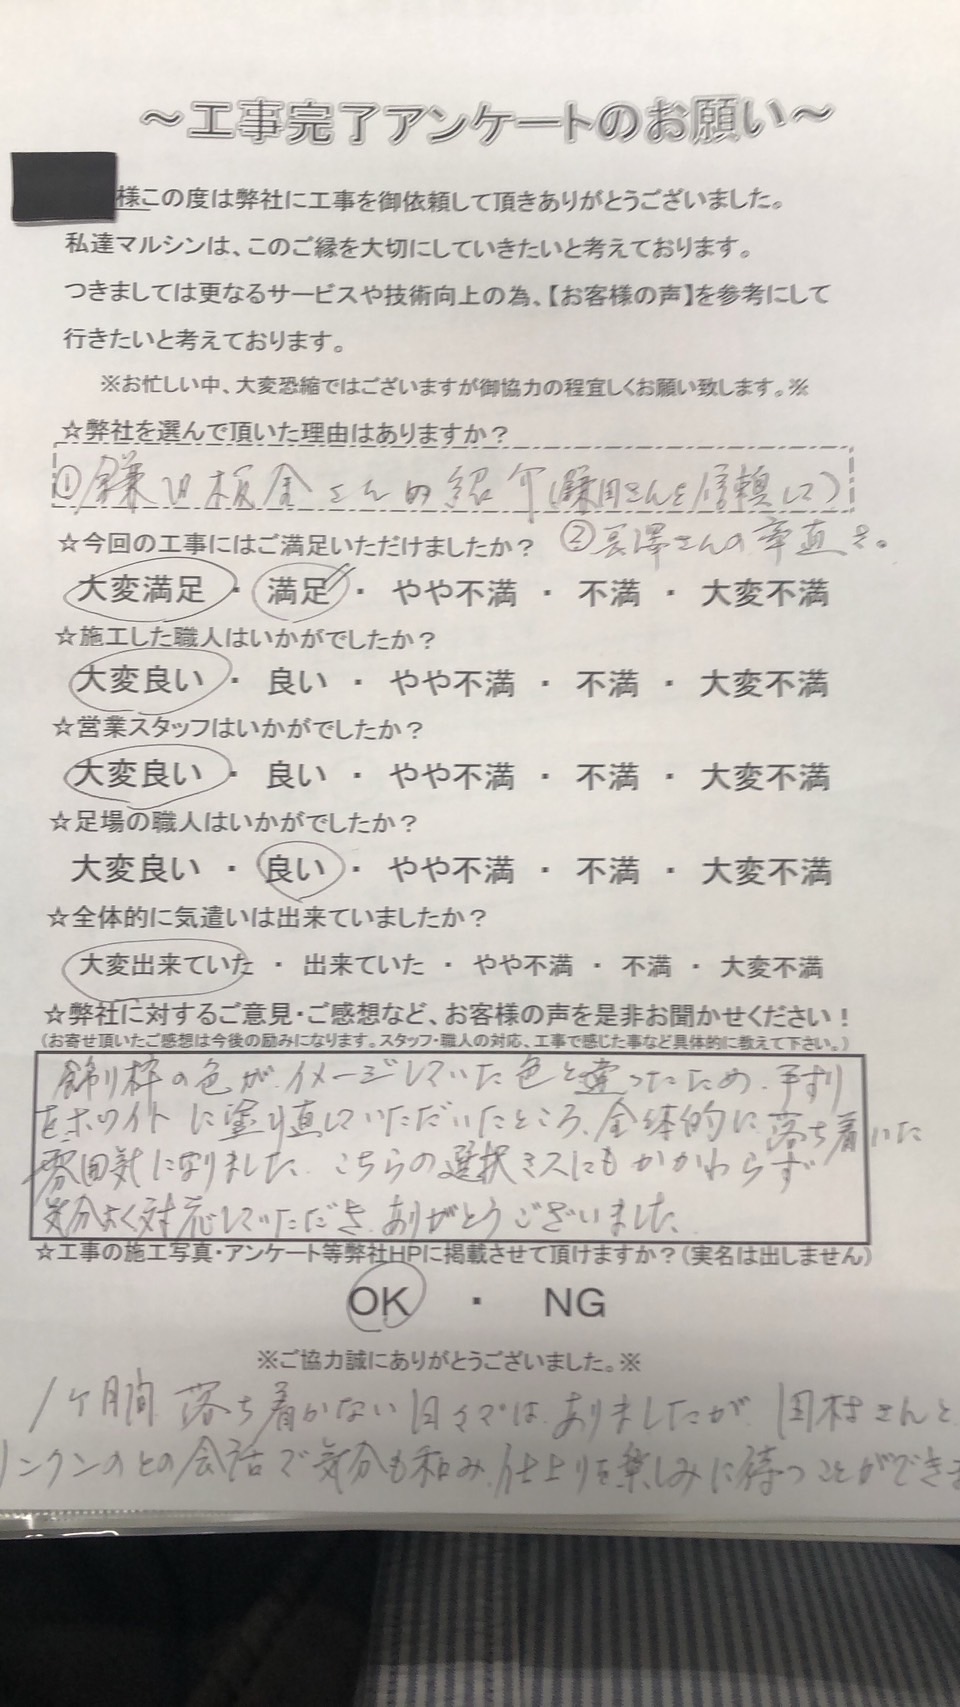 ～工事完了アンケートのお願い～
様この度は弊社に工事を御依頼して頂きありがとうございました。
私達マルシンは、このご縁を大切にしていきたいと考えております。
つきましては更なるサービスや技術向上の為、【お客様の声】を参考にして
行きたいと考えております。
※お忙しい中、大変恐縮ではございますが御協力の程宜しくお願い致します。※
☆弊社を選んで頂いた理由はありますか？
①鎌田板金さんの紹介(鎌田さんを信頼して)
②長澤さんの率直さ。
☆今回の工事にはご満足いただけましたか？
大変満足 ・ 満足 ・ やや不満 ・ 不満 ・ 大変不満
☆施工した職人はいかがでしたか？
大変良い ・ 良い ・ やや不満 ・ 不満 ・ 大変不満
☆営業スタッフはいかがでしたか？
大変良い ・ 良い ・ やや不満 ・ 不満 ・ 大変不満
☆足場の職人はいかがでしたか？
大変良い ・ 良い ・ やや不満 ・ 不満 ・ 大変不満
☆全体的に気遣いは出来ていましたか？
大変出来ていた ・ 出来ていた ・ やや不満 ・ 不満 ・ 大変不満
☆弊社に対するご意見・ご感想など、お客様の声を是非お聞かせください！
(お寄せ頂いたご感想は今後の励みになります。スタッフ・職人の対応、工事で感じた事など具体的に教えて下さい。)
飾り枠の色が、イメージしていた色と違ったため、手すり
をホワイトに塗り直していただいたところ、全体的に落ち着いた
雰囲気になりました。こちらの選択ミスにもかかわらず
気分よく対応していただき、ありがとうございました。
☆工事の施工写真・アンケート等弊社HPに掲載させて頂けますか？(実名は出しません)
OK ・ NG
※ご協力誠にありがとうございました。※
1ヶ月間、落ち着かない日々ではありましたが、田村さんと
リンクンのとの会話で気分も和み、仕上りを楽しみに待つことができま